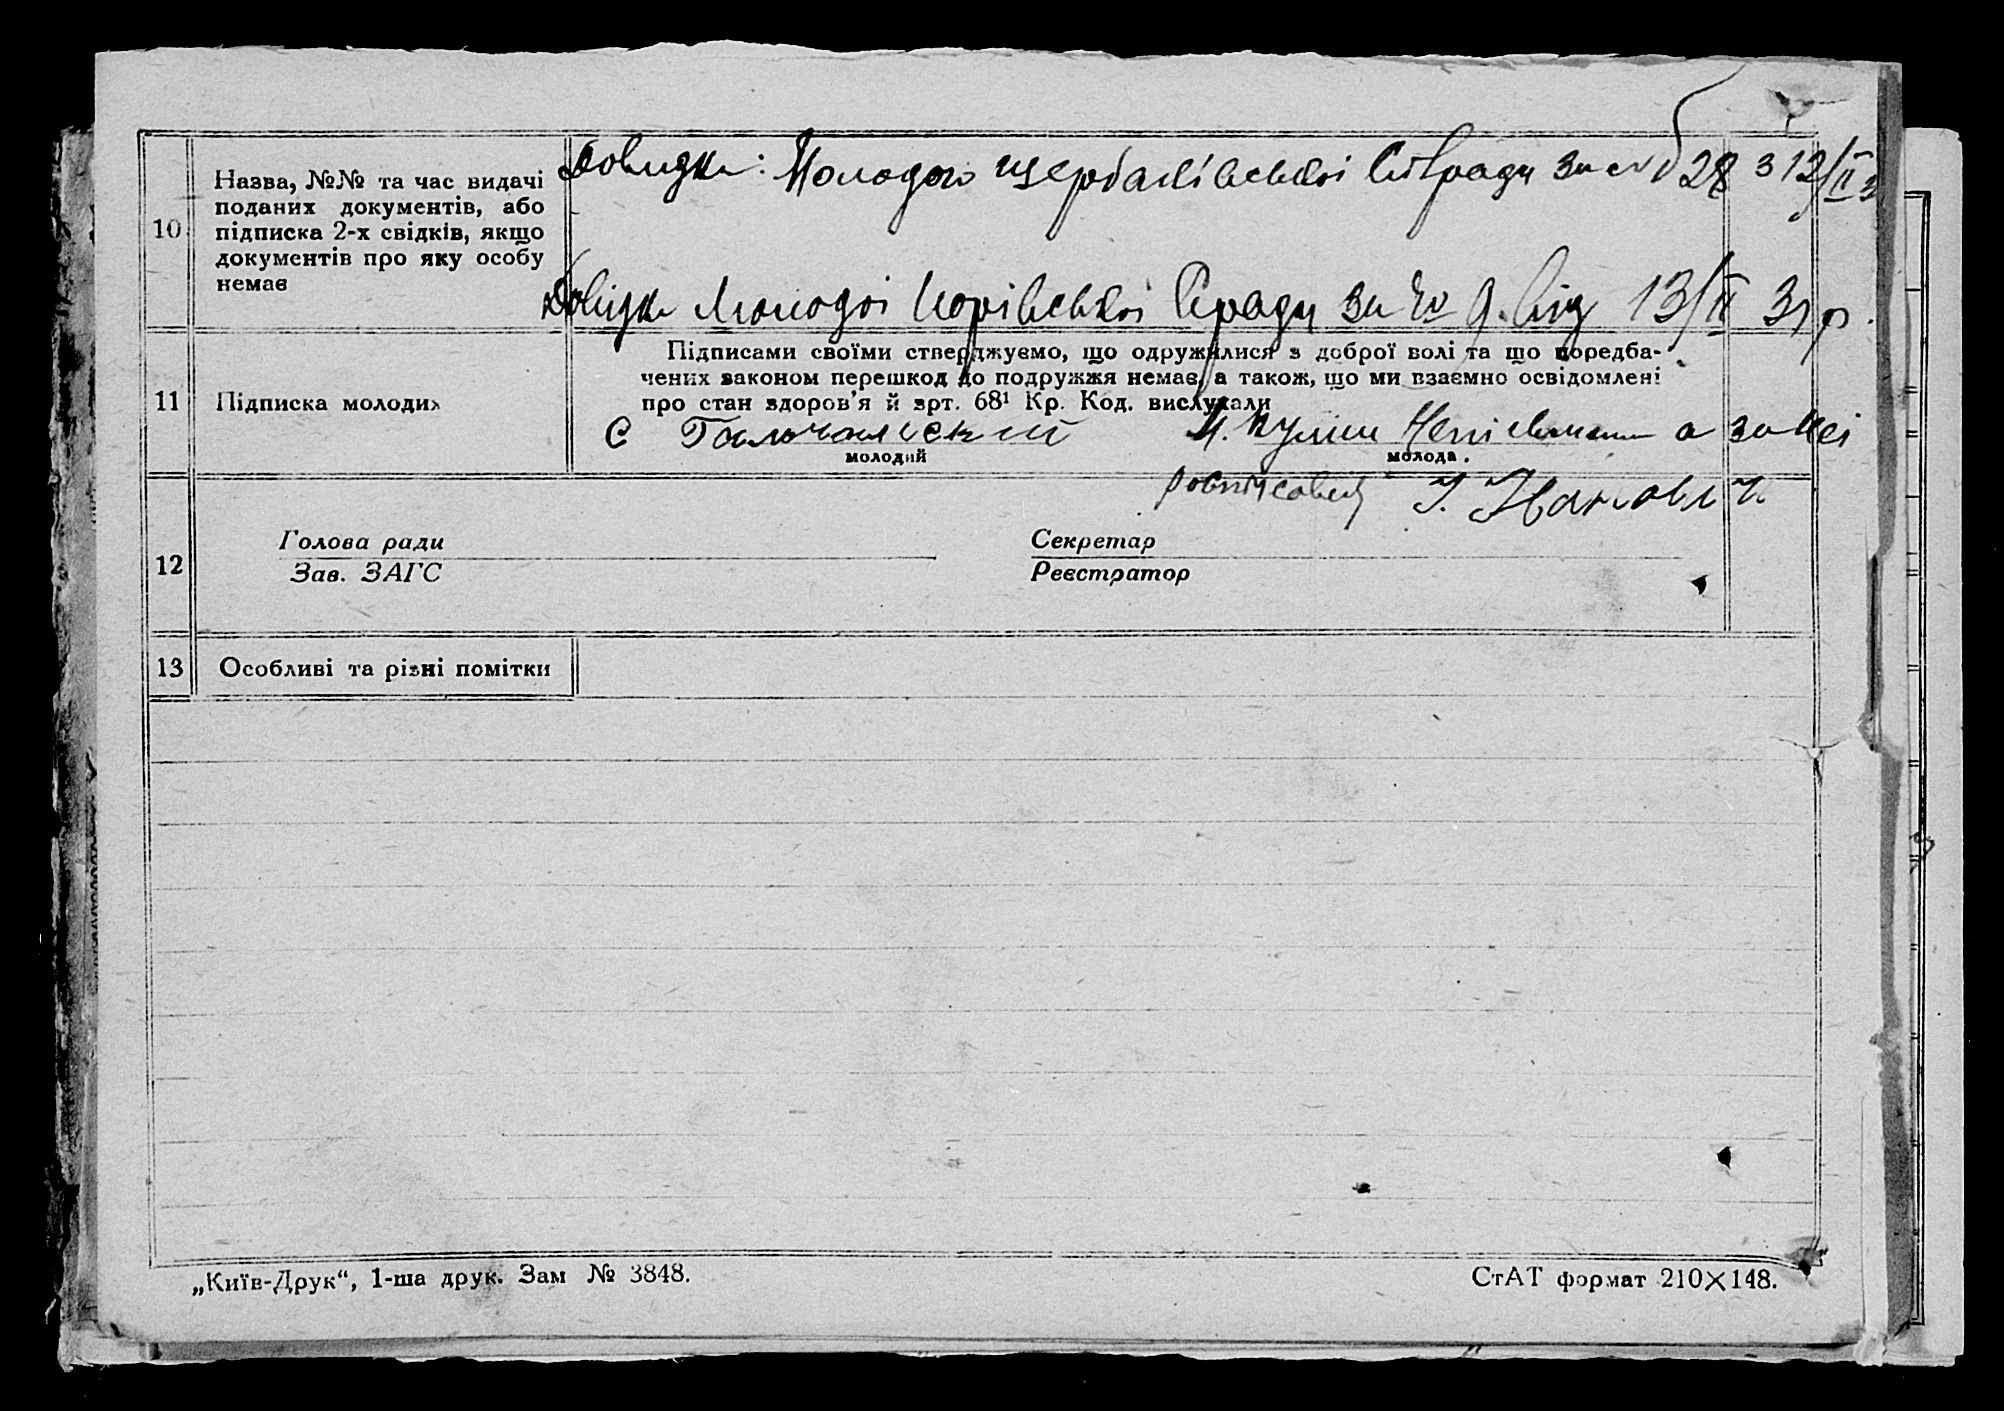 Довидка: Молодого щербанівської С/ради за № 28 з 12/II 3
10
Назва, №№ та час видачі
поданих документів, або
підписка 2-х свідків, якщо
документів про яку особу
немає
Довидка Молодої С/ради за № 9. від 13/II 31 р.
11
Підписка молодих
Підписами своїми стверджуємо, що одружилися з доброї волі та що передба-
чених законом перешкод до подружжя немає, а також, що ми взаємно освідомлені
про стан здоров'я й арт. 68¹ Кр. Код. вислухали
С Гальчанский
молодий
М. а за неї
молода.
И.
12
Голова ради
Зав. ЗАГС
Секретар
Реєстратор
13
Особливі та різні помітки
„Київ-Друк“, 1-ша друк. Зам № 3848.
СтАТ формат 210×148.